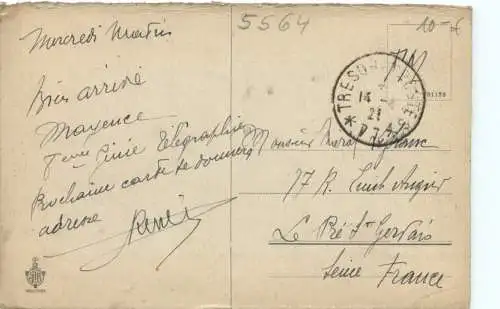 5564
10-€
Mercredi Matin
Bien arrivé
Mayence
Génie Télégraphie
Prochaine carte te donnerai
adresse
TRESOR ET POSTES
14
21
* 77 *
FM
Monsieur
77 R. Emile Augier
Le Pré St Gervais
Seine France